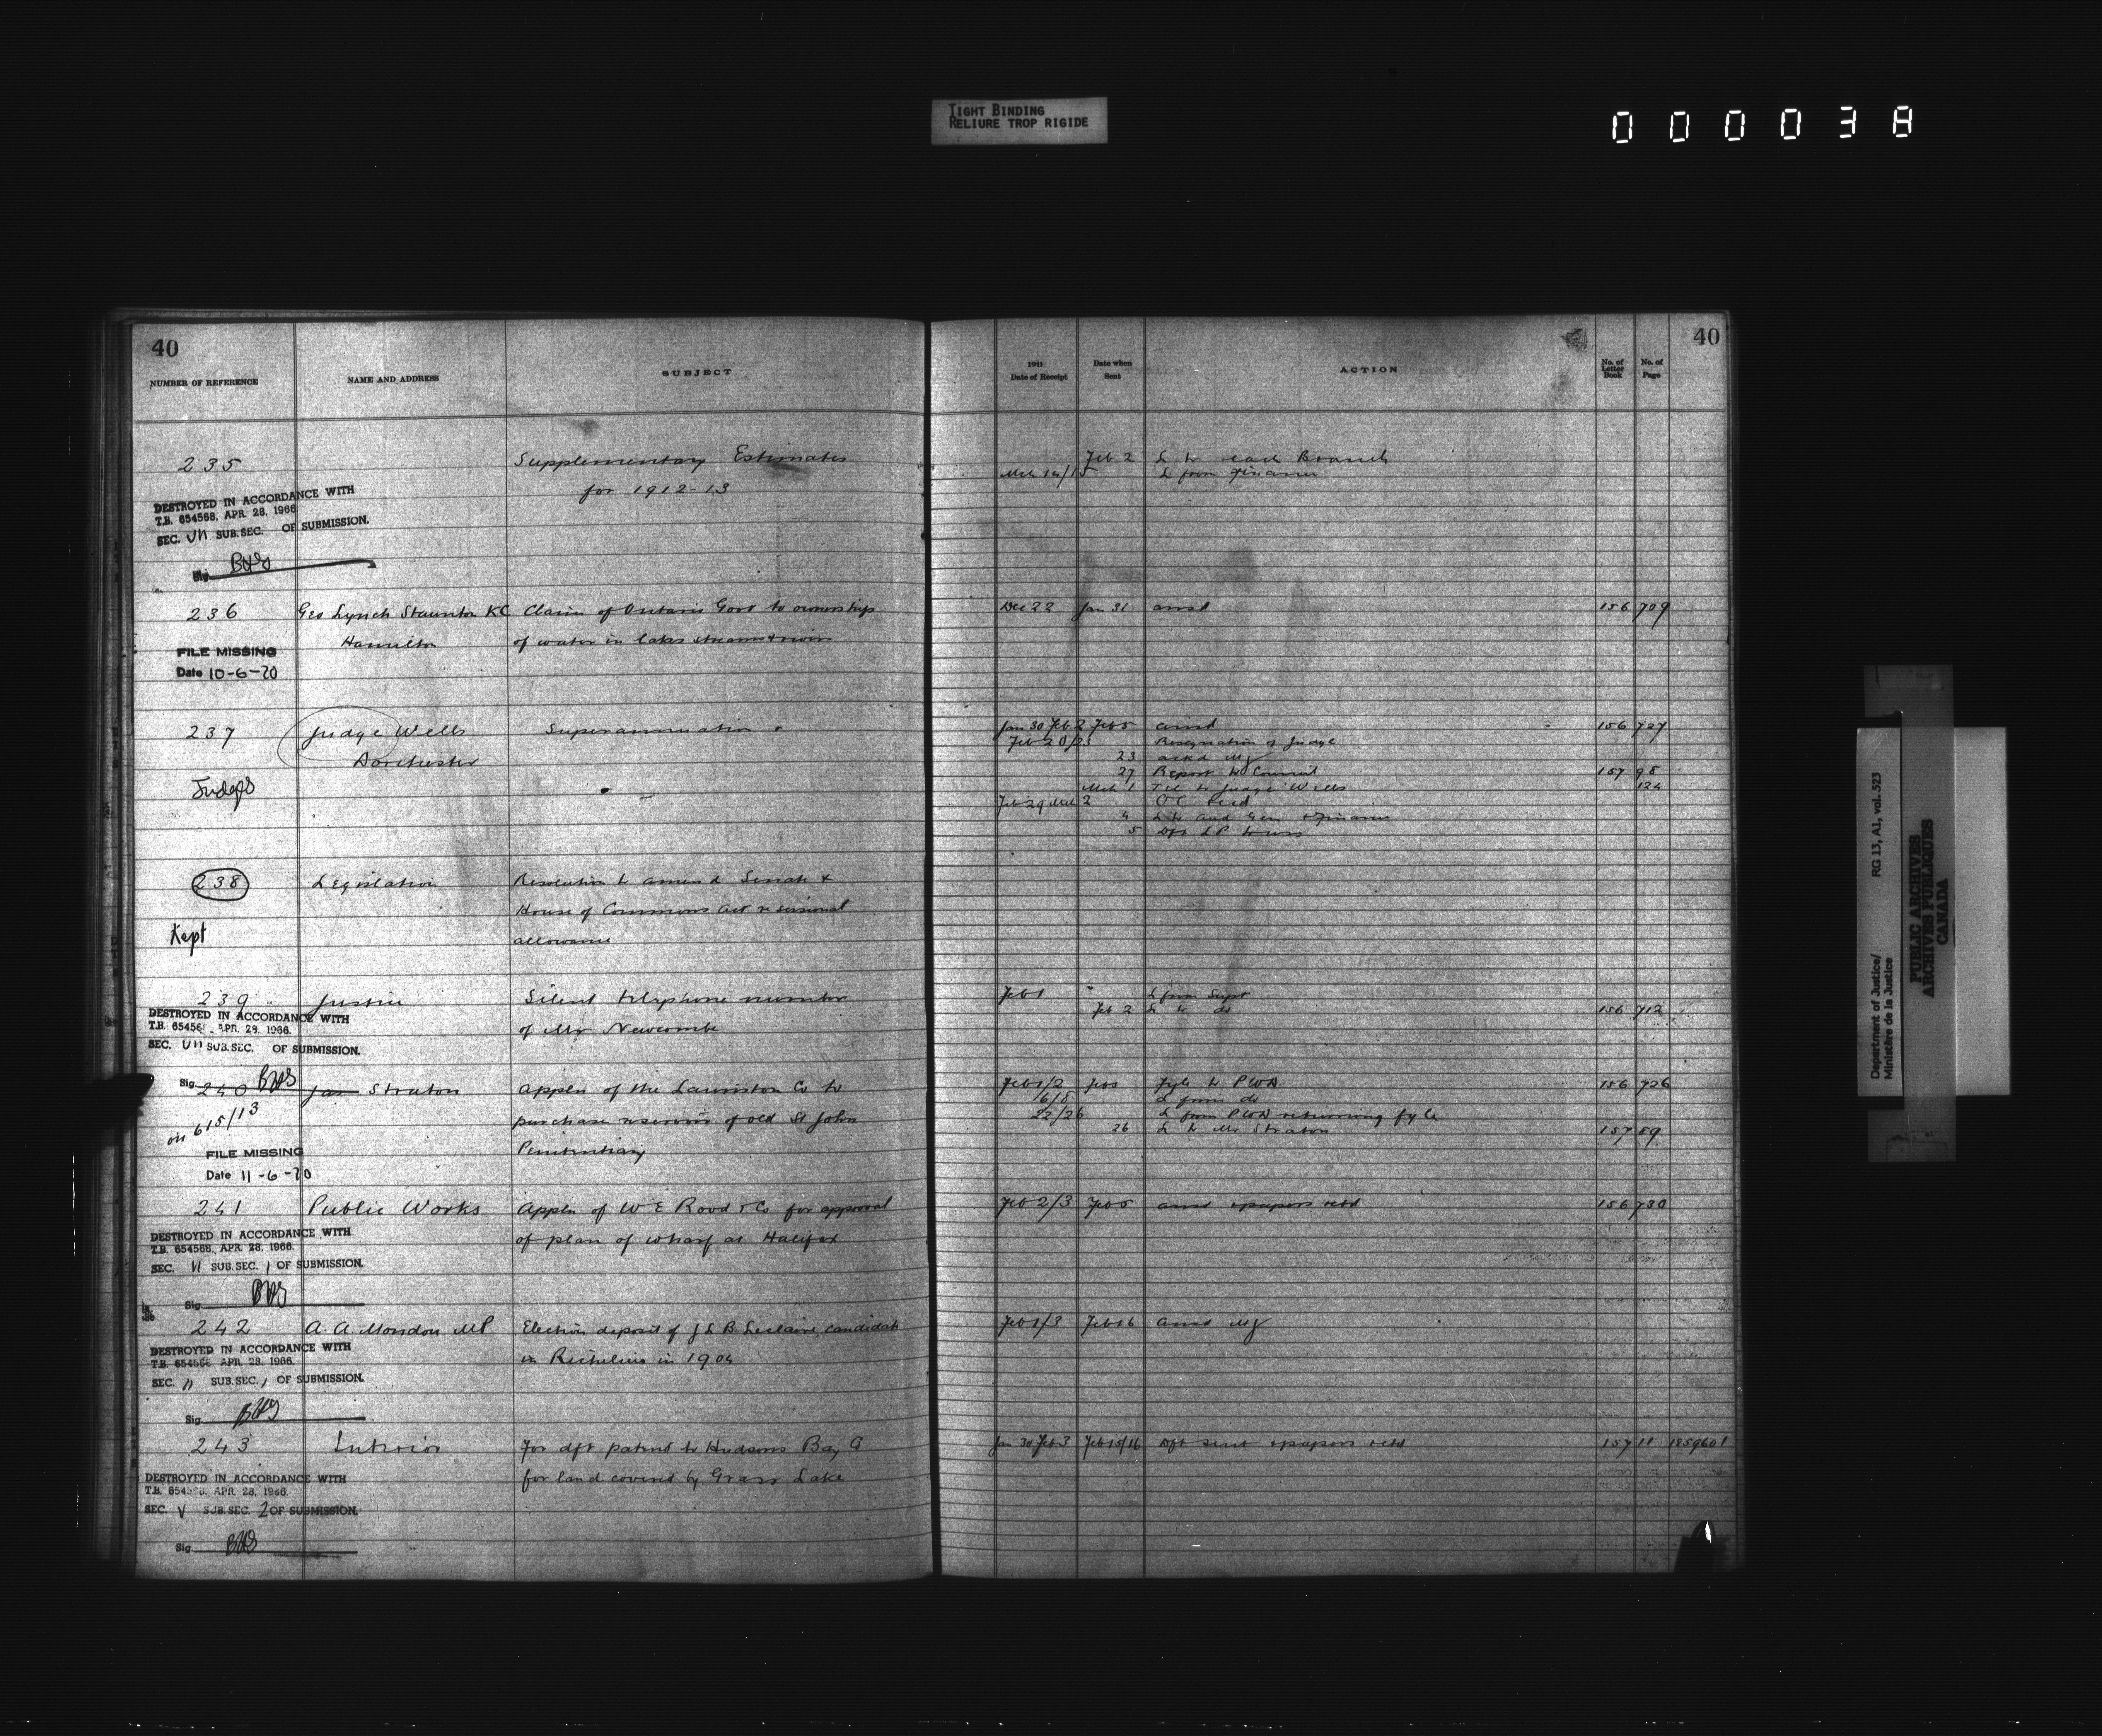 TIGHT BINDING
RELIURE TROP RIGIDE
000038
40
NUMBER OF REFERENCE
NAME AND ADDRESS
SUBJECT
235
Supplementary Estimates
for 1912-13
DESTROYED IN ACCORDANCE WITH
T.B. 654568, APR. 28, 1966
SEC. VII SUB.SEC. OF SUBMISSION.
Sig.
236 Geo Lynch Staunton KC Claim of Ontario Govt to ownership
Hamilton of water in lakes streams & rivers
FILE MISSING
Date 10-6-70
237 Judge Wells Superannuation
Dorchester
Judges
238 Legislation Resolution to amend Senate &
House of Commons Act re sessional
Kept allowance
239 Justice Silent telephone number
of Mr Newcombe
DESTROYED IN ACCORDANCE WITH
T.B. 65456 , APR. 28, 1966.
SEC. VII SUB.SEC. OF SUBMISSION.
Sig.
240 Jas Straton Applcn of the Lauriston Co to
on 615/13 purchase reservoir of old St John
Penitentiary
FILE MISSING
Date 11-6-70
241 Public Works Applcn of W E Rood & Co for approval
of plan of wharf at Halifax
DESTROYED IN ACCORDANCE WITH
T.B. 654568, APR. 28, 1966.
SEC. VI SUB.SEC. 1 OF SUBMISSION.
Sig.
242 A. A. Mondou MP Election deposit of J L B Leclaire, candidate
in Richelieu in 1904
DESTROYED IN ACCORDANCE WITH
T.B. 654568, APR. 28, 1966.
SEC. VI SUB.SEC. 1 OF SUBMISSION.
Sig.
243 Interior For dft patent to Hudsons Bay Co
for land covered by Grass Lake
DESTROYED IN ACCORDANCE WITH
T.B. 654568, APR. 28, 1966.
SEC. V SUB.SEC. 2 OF SUBMISSION.
Sig.
40
1911
Date of Receipt
Date when
Sent
ACTION
No. of
Letter
Book
No. of
Page
Feb 2 L to each Branch
Mch 14/15 L from Finance
Dec 22 Jan 31 ansd 156 709
Jan 30 Feb 2 Feb 5 ansd 156 727
Feb 20/23 Resignation of Judge
23 ackd
27 Report to Council 157 98
Mch 1 Tel to Judge Wells 124
Feb 29 Mch 2 OC recd
4 L to Aud Gen & Finance
5 Dft L P
Feb 1 L from Supt
Feb 2 L to do 156 712
Feb 1/2 Feb 5 Fyle to PWD 156 726
6/8 L from do
22/26 L from PWD returning fyle
26 L to Mr Straton 157 89
Feb 2/3 Feb 5 ansd & papers retd 156 730
Feb 1/3 Feb 16 ansd
Jan 30 Feb 3 Feb 15/16 Dft sent & papers retd 157 11 1859601
Department of Justice/
Ministère de la Justice
RG 13, A1, vol. 523
PUBLIC ARCHIVES
ARCHIVES PUBLIQUES
CANADA